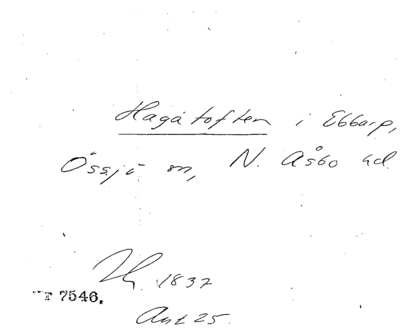 Hagatoften i Ebbarp,
Össjö sn, N. Åsbo hd.
1837
7546.
Ant 25.